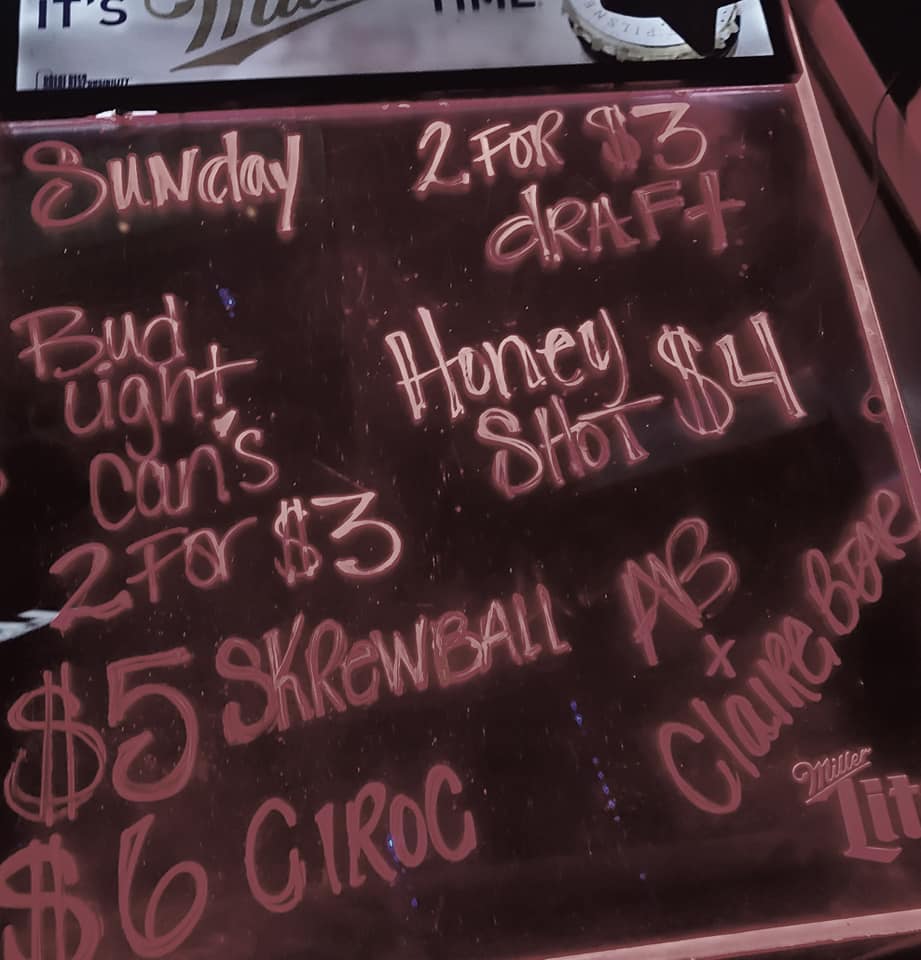 IT'S Miller TIME
PILSNE
Sunday
2 FOR $3
dRAFt
Bud
Light
can's
2 For $3
Honey
SHOT $4
$5 SKREWBALL
AB
x
Claire BEAR
$6 CIROC
Miller
Lit